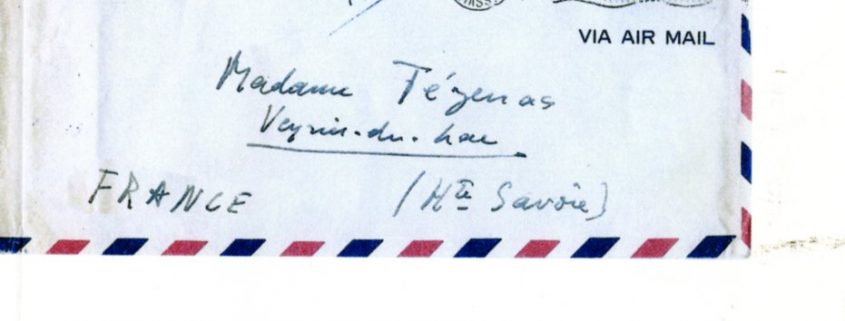 VIA AIR MAIL
Madame Tézenas
Veyrier-du-Lac
FRANCE (Hte Savoie)